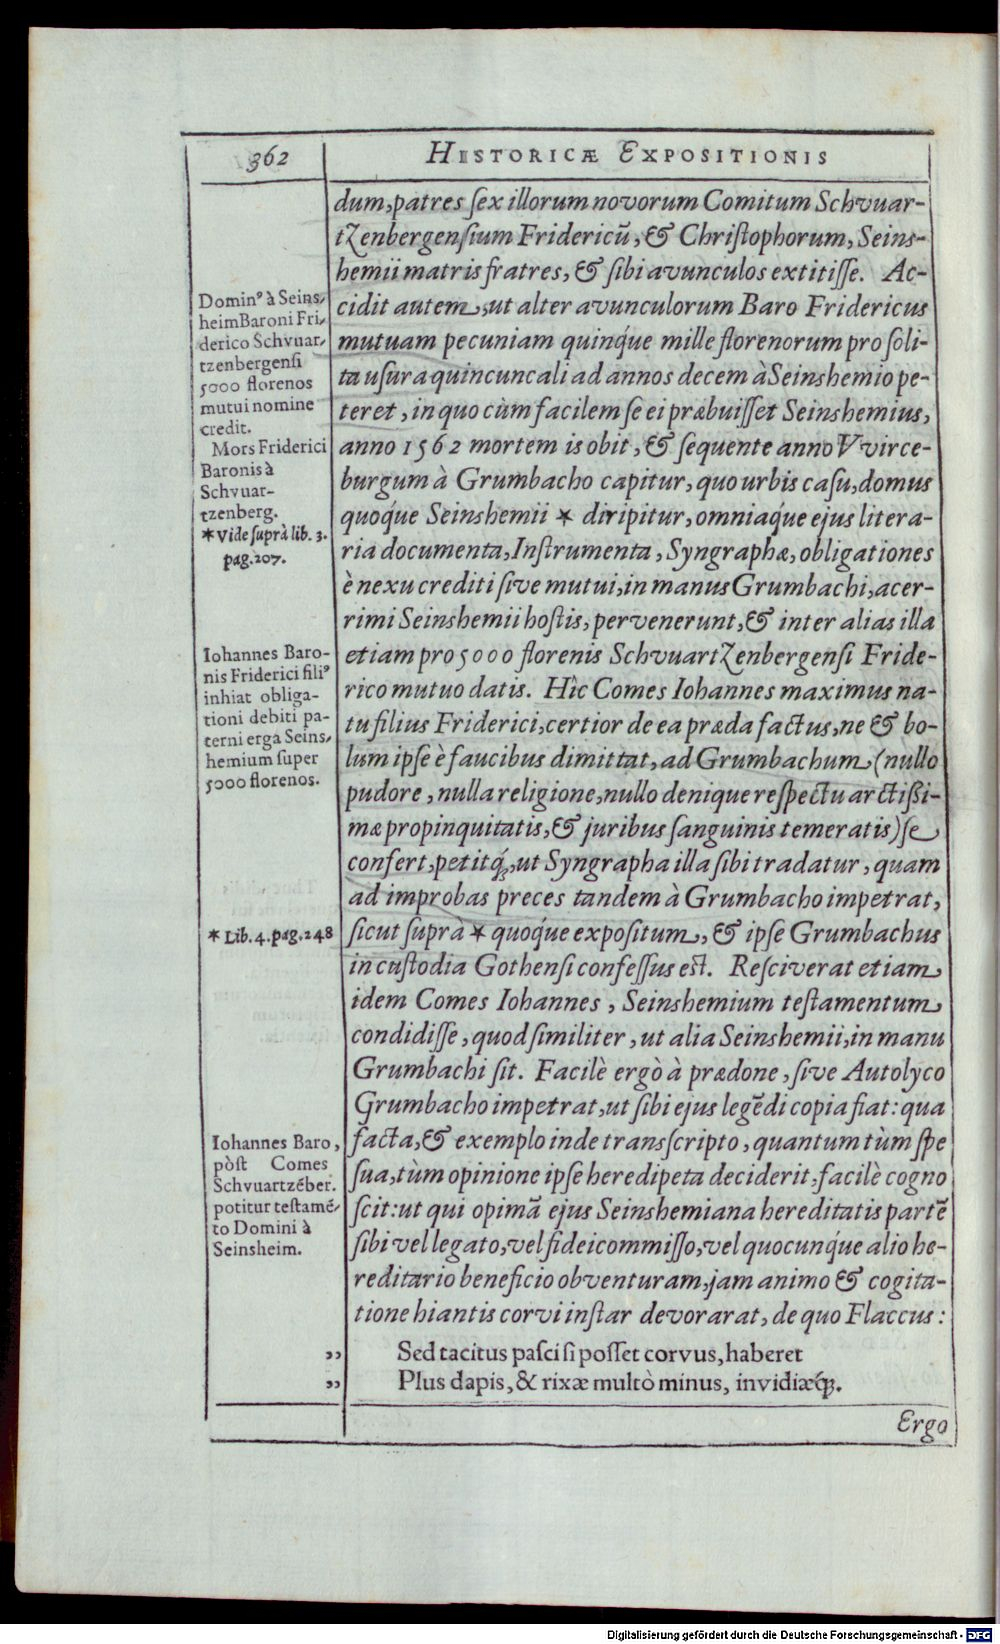 362
HISTORICÆ EXPOSITIONIS
dum, patres ſex illorum novorum Comitum Schvuar-
tzenbergenſium Fridericū, & Chriſtophorum, Seins-
hemii matris fratres, & ſibi avunculos extitiſſe. Ac-
cidit autem, ut alter avunculorum Baro Fridericus
mutuam pecuniam quinq́ue mille florenorum pro ſoli-
ta uſura quincuncali ad annos decem à Seinshemio pe-
teret, in quo cùm facilem ſe ei præbuiſſet Seinshemius,
anno 1562 mortem is obit, & ſequente anno Vvirce-
burgum à Grumbacho capitur, quo urbis caſu, domus
quoq́ue Seinshemii * diripitur, omniaq́ue ejus litera-
ria documenta, Inſtrumenta, Syngraphæ, obligationes
è nexu crediti ſive mutui, in manus Grumbachi, acer-
rimi Seinshemii hoſtis, pervenerunt, & inter alias illa
etiam pro 5000 florenis Schvuartzenbergenſi Fride-
rico mutuo datis. Hìc Comes Iohannes maximus na-
tu filius Friderici, certior de ea præda factus, ne & bo-
lum ipſe è faucibus dimittat, ad Grumbachum (nullo
pudore, nulla religione, nullo denique reſpectu arctißi-
mæ propinquitatis, & juribus ſanguinis temeratis) ſe
confert, petitq́;, ut Syngrapha illa ſibi tradatur, quam
ad improbas preces tandem à Grumbacho impetrat,
ſicut ſuprà * quoq́ue expoſitum, & ipſe Grumbachus
in cuſtodia Gothenſi confeſſus eſt. Reſciverat etiam
idem Comes Iohannes, Seinshemium teſtamentum
condidiſſe, quod ſimiliter, ut alia Seinshemii, in manu
Grumbachi ſit. Facilè ergò à prædone, ſive Autolyco
Grumbacho impetrat, ut ſibi ejus legēdi copia fiat: qua
facta, & exemplo inde transſcripto, quantum tùm ſpe
ſua, tùm opinione ipſe heredipeta deciderit, facilè cogno
ſcit: ut qui opimā ejus Seinshemiana hereditatis partē
ſibi vel legato, vel fideicommiſſo, vel quocunq́ue alio he-
reditario beneficio obventuram, jam animo & cogita-
tione hiantis corvi inſtar devorarat, de quo Flaccus:
,, Sed tacitus paſci ſi poſſet corvus, haberet
,, Plus dapis, & rixæ multò minus, invidiæq́;.
Ergo
Dominꝰ à Seins-
heim Baroni Fri-
derico Schvuar-
tzenbergenſi
5000 florenos
mutui nomine
credit.
Mors Friderici
Baronis à
Schvuar-
tzenberg.
* Vide ſuprà lib. 3.
pag. 207.
Iohannes Baro-
nis Friderici filiꝰ
inhiat obliga-
tioni debiti pa-
terni erga Seins-
hemium ſuper
5000 florenos.
* Lib. 4. pag. 248
Iohannes Baro,
pòſt Comes
Schvuartzēber.
potitur teſtamē-
to Domini à
Seinsheim.
Digitalisierung gefördert durch die Deutsche Forschungsgemeinschaft - DFG